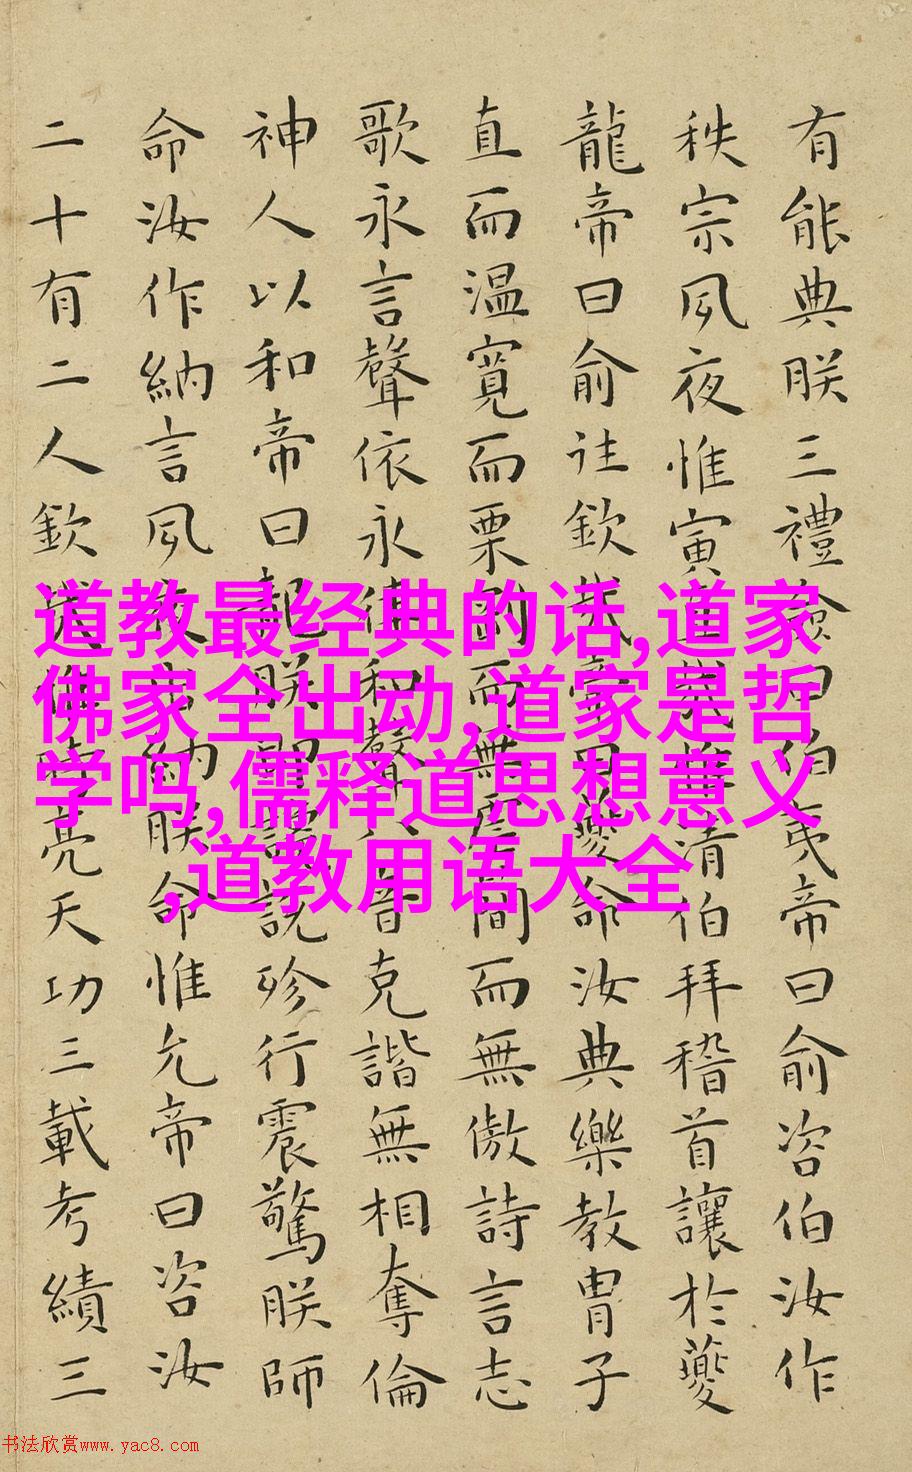 有能典朕三禮僉曰伯夷帝曰俞咨伯汝作
秩宗夙夜惟寅直哉惟清伯拜稽首讓於夔
龍帝曰俞往欽哉帝曰夔命汝典樂教胄子
直而温寬而栗剛而無虐簡而無傲詩言志
歌永言聲依永律和聲八音克諧無相奪倫
神人以和帝曰龍朕堲讒說殄行震驚朕師
命汝作納言夙夜出納朕命惟允帝曰咨汝
二十有二人欽哉惟時亮天功三載考績三
道教最经典的话,道家
佛家全出动,道家是哲
学吗,儒释道思想意义
,道教用语大全
书法欣赏www.yac8.com